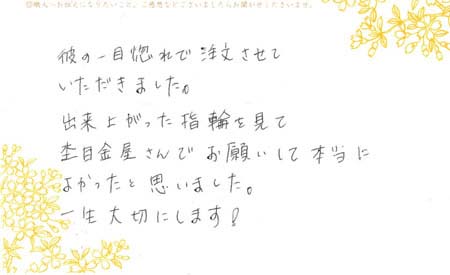 ◎職人へお伝えになりたいこと、ご感想などございましたらお聞かせくださいませ。
彼の一目惚れで注文させて
いただきました。
出来上がった指輪を見て
杢目金屋さんでお願いして本当に
よかったと思いました。
一生大切にします!